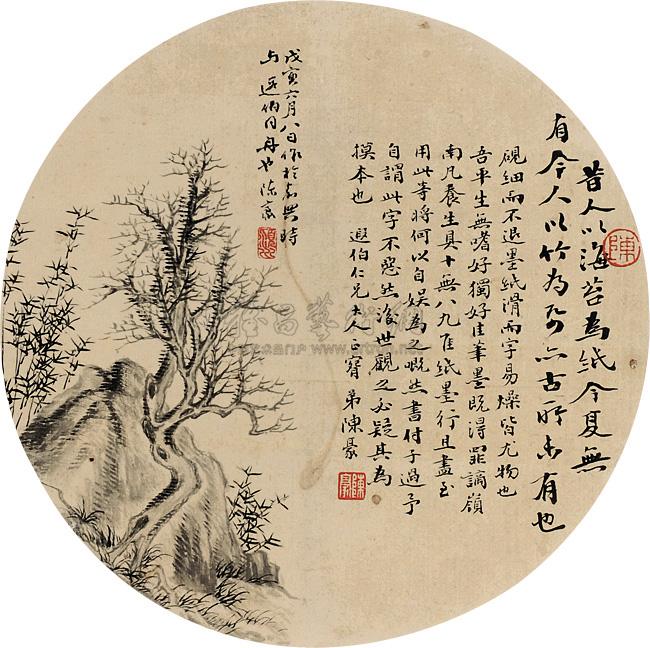 昔人以海苔為紙今复無
有今人以竹為帋亦古所未有也
硯細而不退墨紙滑而字易燥皆尤物也
吾平生無嗜好獨好佳筆墨既得罪謫嶺
南凡養生具十無八九佳紙墨行且盡至
用此等將何以自娛為之慨然書付子過予
自謂此字不惡然後世觀之必疑其為
摸本也 遐伯仁兄大人正 弟陳豪
陳
陳豪
戊寅六月八日作於嘉興時
与遐伯同舟也陳豪